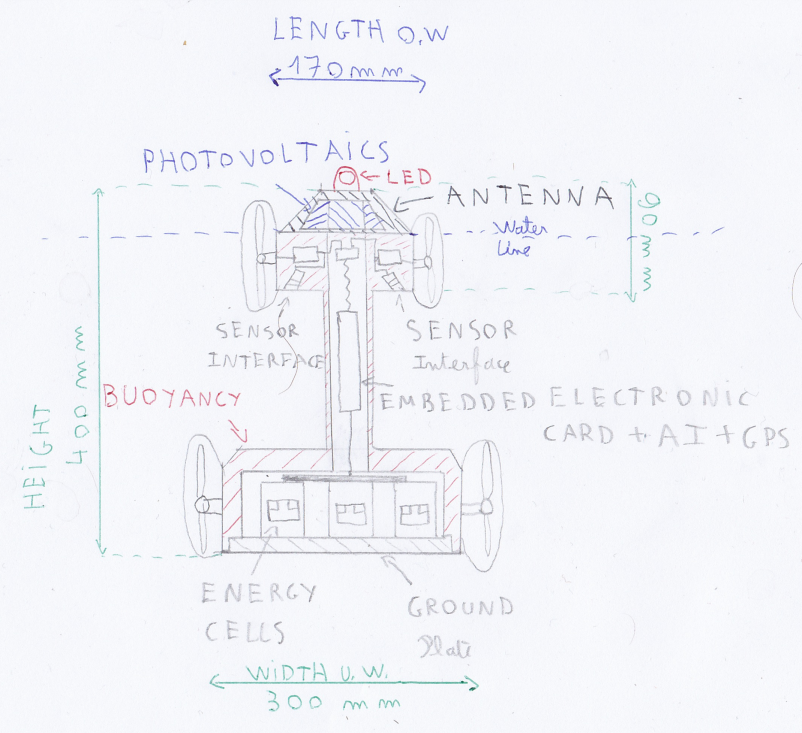 LENGTH O.W
170mm
PHOTOVOLTAICS
LED
ANTENNA
Water
Line
90 mm
SENSOR
INTERFACE
SENSOR
Interface
HEIGHT
400 mm
BUOYANCY
EMBEDDED ELECTRONIC
CARD + AI + GPS
ENERGY
CELLS
GROUND
Plate
WIDTH U.W.
300 mm